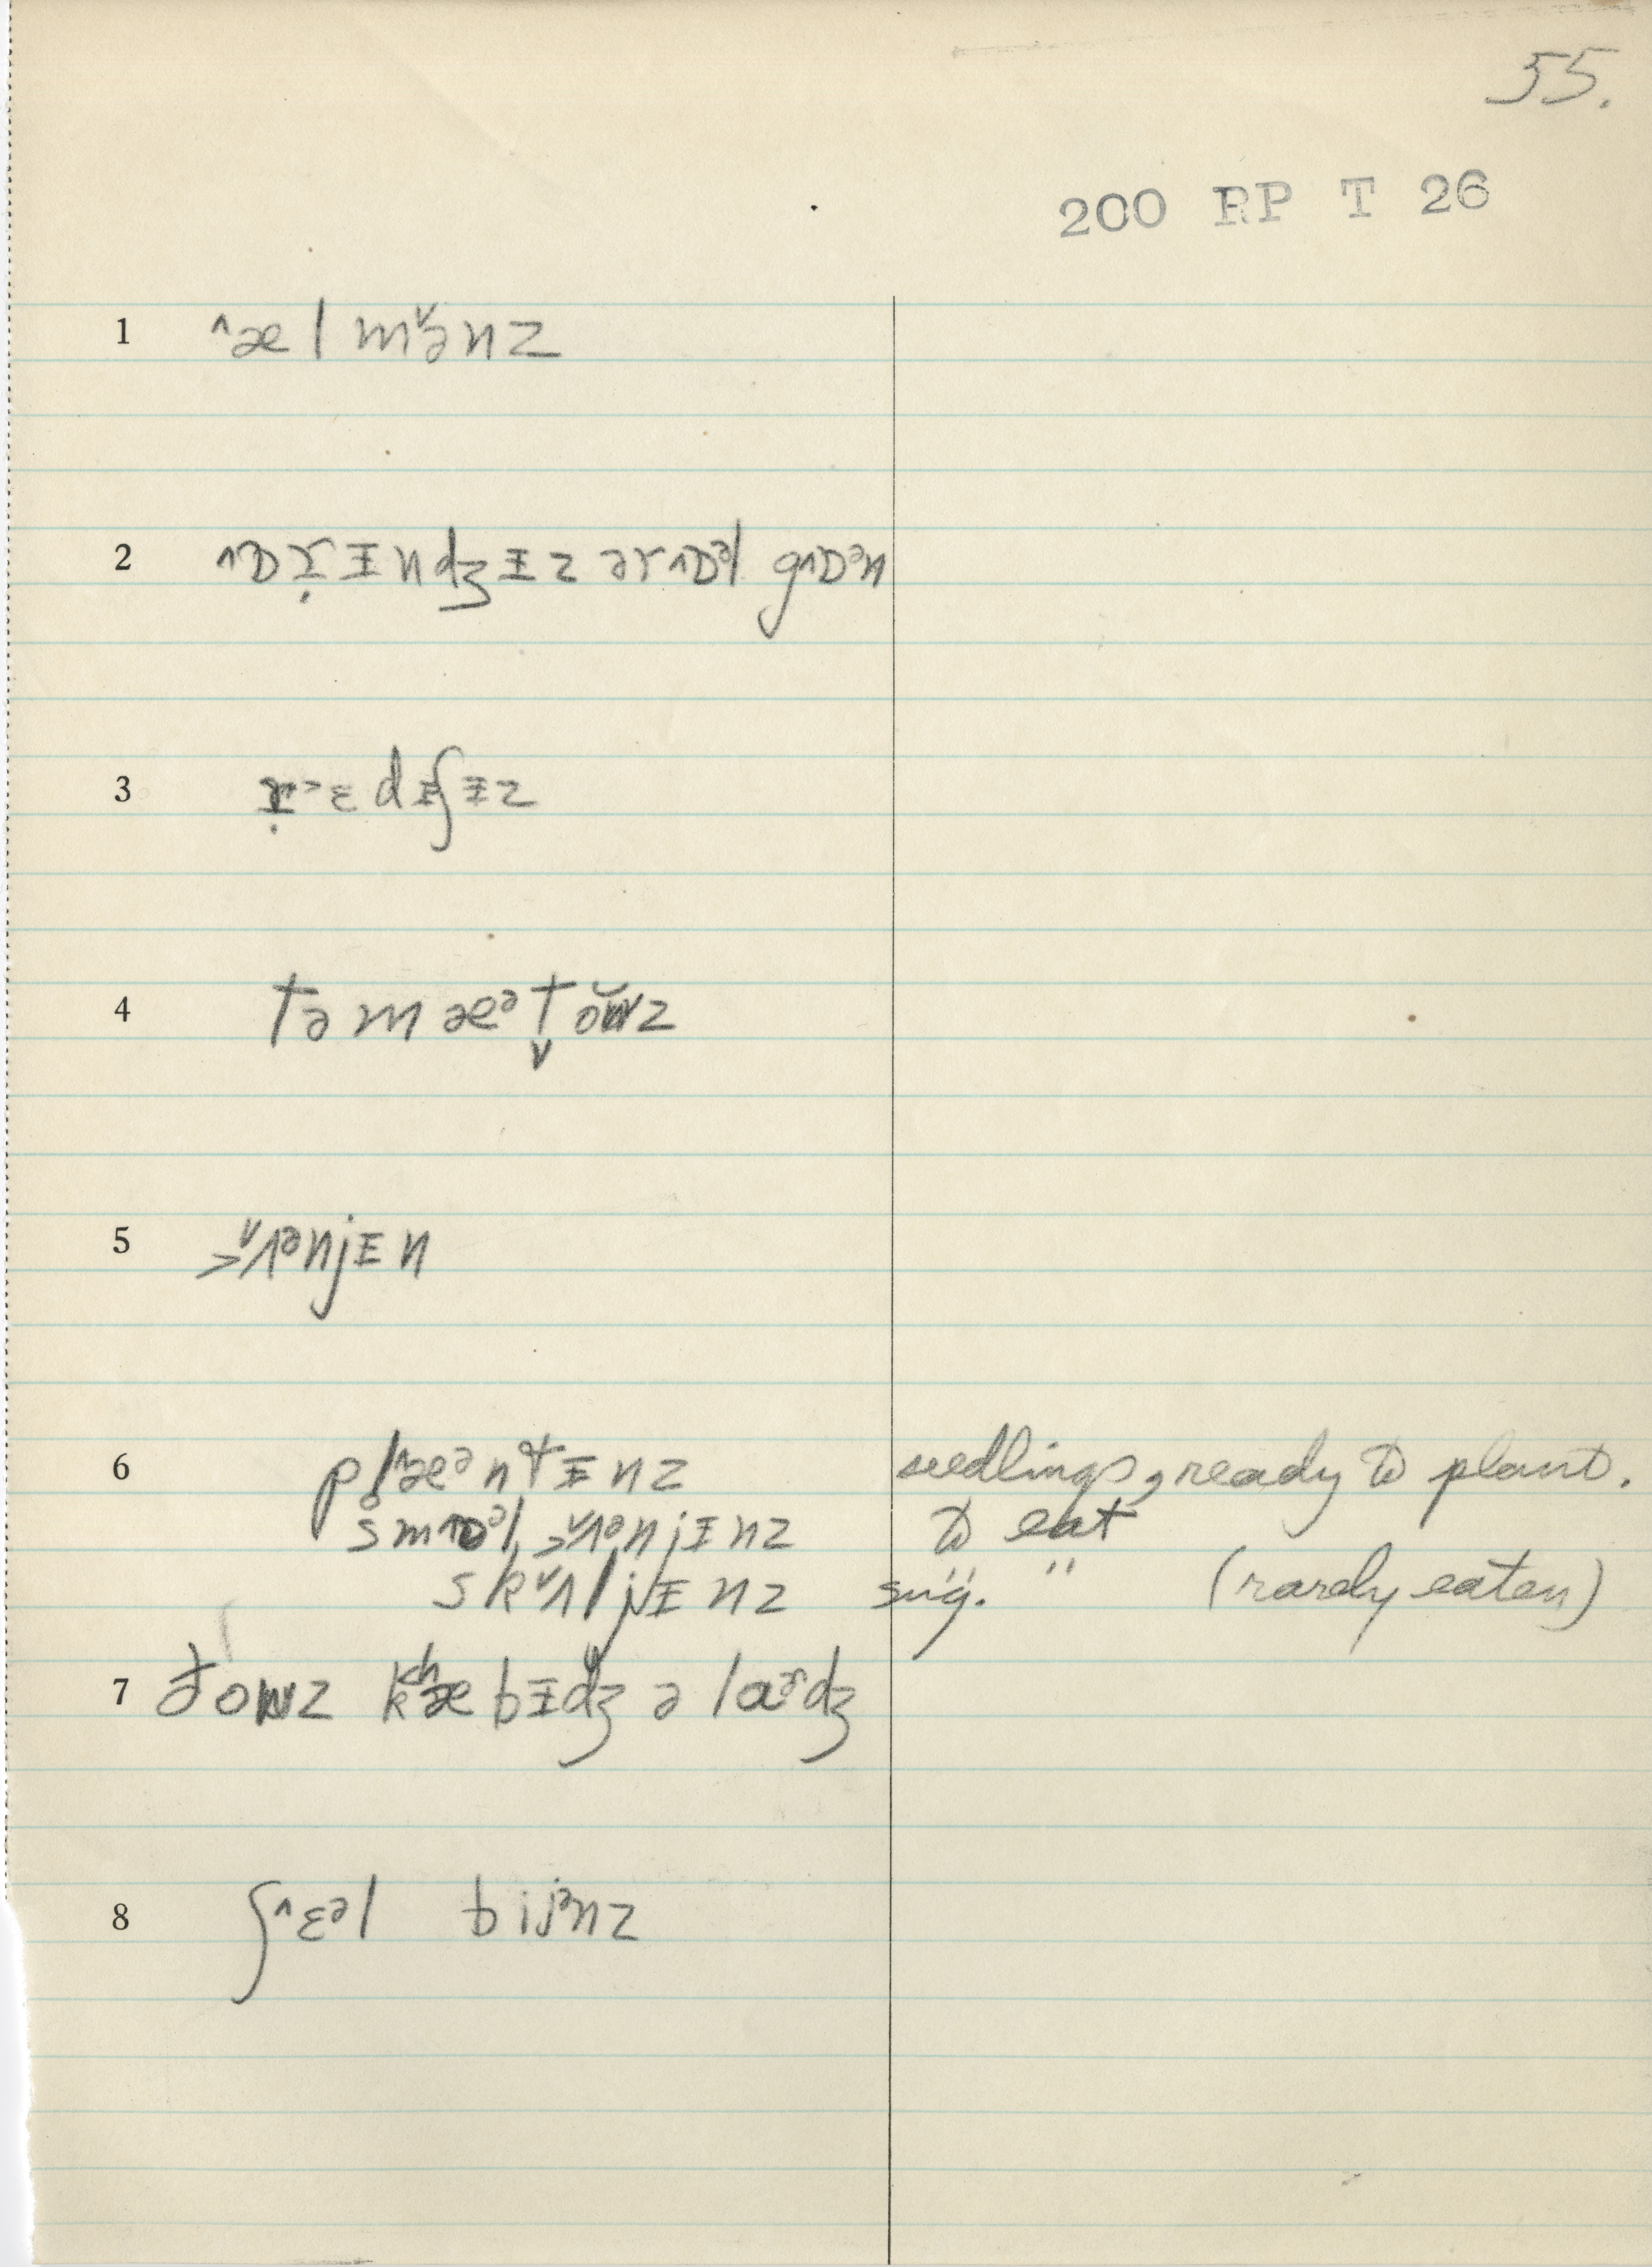 55.
200 RP T 26
1 ˄æl mə˅nz
2 ˄ɒɾ̣ɪndʒɪz ər˄ɒᵊl g˄ɒᵊn
3 ɾ̣˃ɛdɪʃɪz
4 təmæᵊt̬oʊ̆z
5 ˃˅ʌᵊnjɪn
6 pl̥˄æᵊntɪnz seedlings, ready to plant.
sm˄ɒᵊl ˃˅ʌᵊnjɪnz to eat
sk˅ʌljɪnz sug. " " (rarely eaten)
7 ðoʊz kʰæbɪdʒ ə laɚdʒ
8 ʃ˄ɛᵊl bijᵊnz